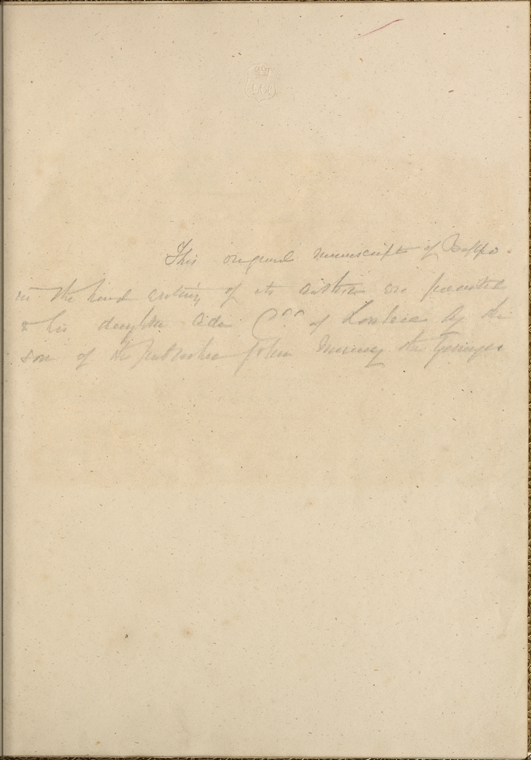 This original manuscript of Beppo.
in the hand writing of its author was presented
to his daughter Ada Css of Lovelace by the
son of the publisher John Murray the Younger